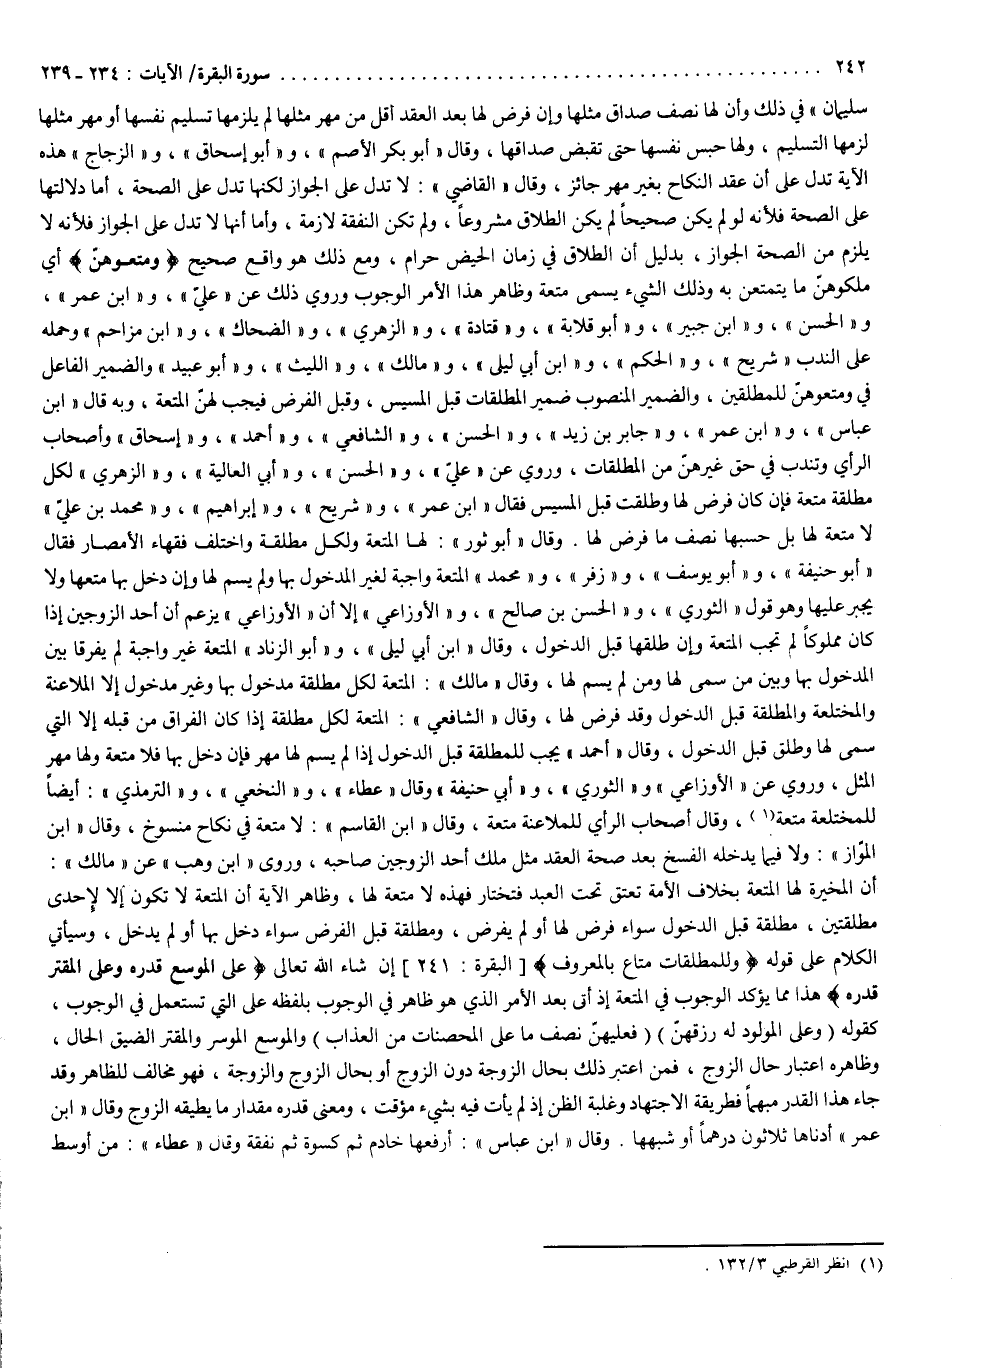 ٢٤٢ .................................................. سورة البقرة/ الآيات : ٢٣٤ - ٢٣٩
سليمان » في ذلك وأن لها نصف صداق مثلها وإن فرض لها بعد العقد أقل من مهر مثلها لم يلزمها تسليم نفسها أو مهر مثلها
لزمها التسليم ، ولها حبس نفسها حتى تقبض صداقها ، وقال « أبو بكر الأصم » ، و « أبو إسحاق » ، و « الزجاج » هذه
الآية تدل على أن عقد النكاح بغير مهر جائز ، وقال « القاضي » : لا تدل على الجواز لكنها تدل على الصحة ، أما دلالتها
على الصحة فلأنه لو لم يكن صحيحاً لم يكن الطلاق مشروعاً ، ولم تكن النفقة لازمة ، وأما أنها لا تدل على الجواز فلأنه لا
يلزم من الصحة الجواز ، بدليل أن الطلاق في زمان الحيض حرام ، ومع ذلك هو واقع صحيح ﴿ ومتعوهنّ ﴾ أي
ملكوهنّ ما يتمتعن به وذلك الشيء يسمى متعة وظاهر هذا الأمر الوجوب وروي ذلك عن « عليّ » ، و « ابن عمر » ،
و « الحسن » ، و « ابن جبير » ، و « أبو قلابة » ، و « قتادة » ، و « الزهري » ، و « الضحاك » ، و « ابن مزاحم » وحمله
على الندب « شريح » ، و « الحكم » ، و « ابن أبي ليلى » ، و « مالك » ، و « الليث » ، و « أبو عبيد » والضمير الفاعل
في ومتعوهنّ للمطلقين ، والضمير المنصوب ضمير المطلقات قبل المسيس ، وقبل الفرض فيجب لهنّ المتعة ، وبه قال « ابن
عباس » ، و « ابن عمر » ، و « جابر بن زيد » ، و « الحسن » ، و « الشافعي » ، و « أحمد » ، و « إسحاق » وأصحاب
الرأي وتندب في حق غيرهنّ من المطلقات ، وروي عن « عليّ » ، و « الحسن » ، و « أبي العالية » ، و « الزهري » لكل
مطلقة متعة فإن كان فرض لها وطلقت قبل المسيس فقال « ابن عمر » ، و « شريح » ، و « إبراهيم » ، و « محمد بن عليّ »
لا متعة لها بل حسبها نصف ما فرض لها . وقال « أبو ثور » : لها المتعة ولكل مطلقة واختلف فقهاء الأمصار فقال
« أبو حنيفة » ، و « أبو يوسف » ، و « زفر » ، و « محمد » المتعة واجبة لغير المدخول بها ولم يسم لها وإن دخل بها متعها ولا
يجبر عليها وهو قول « الثوري » ، و « الحسن بن صالح » ، و « الأوزاعي » إلا أن « الأوزاعي » يزعم أن أحد الزوجين إذا
كان مملوكاً لم تجب المتعة وإن طلقها قبل الدخول ، وقال « ابن أبي ليلى » ، و « أبو الزناد » المتعة غير واجبة لم يفرقا بين
المدخول بها وبين من سمى لها ومن لم يسم لها ، وقال « مالك » : المتعة لكل مطلقة مدخول بها وغير مدخول إلا الملاعنة
والمختلعة والمطلقة قبل الدخول وقد فرض لها ، وقال « الشافعي » : المتعة لكل مطلقة إذا كان الفراق من قبله إلا التي
سمى لها وطلق قبل الدخول ، وقال « أحمد » يجب للمطلقة قبل الدخول إذا لم يسم لها مهر فإن دخل بها فلا متعة ولها مهر
المثل ، وروي عن « الأوزاعي » و « الثوري » ، و « أبي حنيفة » وقال « عطاء » ، و « النخعي » ، و « الترمذي » : أيضاً
للمختلعة متعة(١) ، وقال أصحاب الرأي للملاعنة متعة ، وقال « ابن القاسم » : لا متعة في نكاح منسوخ ، وقال « ابن
الموّاز » : ولا فيما يدخله الفسخ بعد صحة العقد مثل ملك أحد الزوجين صاحبه ، وروى « ابن وهب » عن « مالك » :
أن المخيرة لها المتعة بخلاف الأمة تعتق تحت العبد فتختار فهذه لا متعة لها ، وظاهر الآية أن المتعة لا تكون إلا لإحدى
مطلقتين ، مطلقة قبل الدخول سواء فرض لها أو لم يفرض ، ومطلقة قبل الفرض سواء دخل بها أو لم يدخل ، وسيأتي
الكلام على قوله ﴿ وللمطلقات متاع بالمعروف ﴾ [ البقرة : ٢٤١ ] إن شاء الله تعالى ﴿ على الموسع قدره وعلى المقتر
قدره ﴾ هذا مما يؤكد الوجوب في المتعة إذ أتى بعد الأمر الذي هو ظاهر في الوجوب بلفظه على التي تستعمل في الوجوب ،
كقوله ( وعلى المولود له رزقهنّ ) ( فعليهنّ نصف ما على المحصنات من العذاب ) والموسع الموسر والمقتر الضيق الحال ،
وظاهره اعتبار حال الزوج ، فمن اعتبر ذلك بحال الزوجة دون الزوج أو بحال الزوج والزوجة ، فهو مخالف للظاهر وقد
جاء هذا القدر مبهماً فطريقة الاجتهاد وغلبة الظن إذ لم يأت فيه بشيء مؤقت ، ومعنى قدره مقدار ما يطيقه الزوج وقال « ابن
عمر » أدناها ثلاثون درهماً أو شبهها . وقال « ابن عباس » : أرفعها خادم ثم كسوة ثم نفقة وقال « عطاء » : من أوسط
(١) انظر القرطبي ١٣٢/٣ .